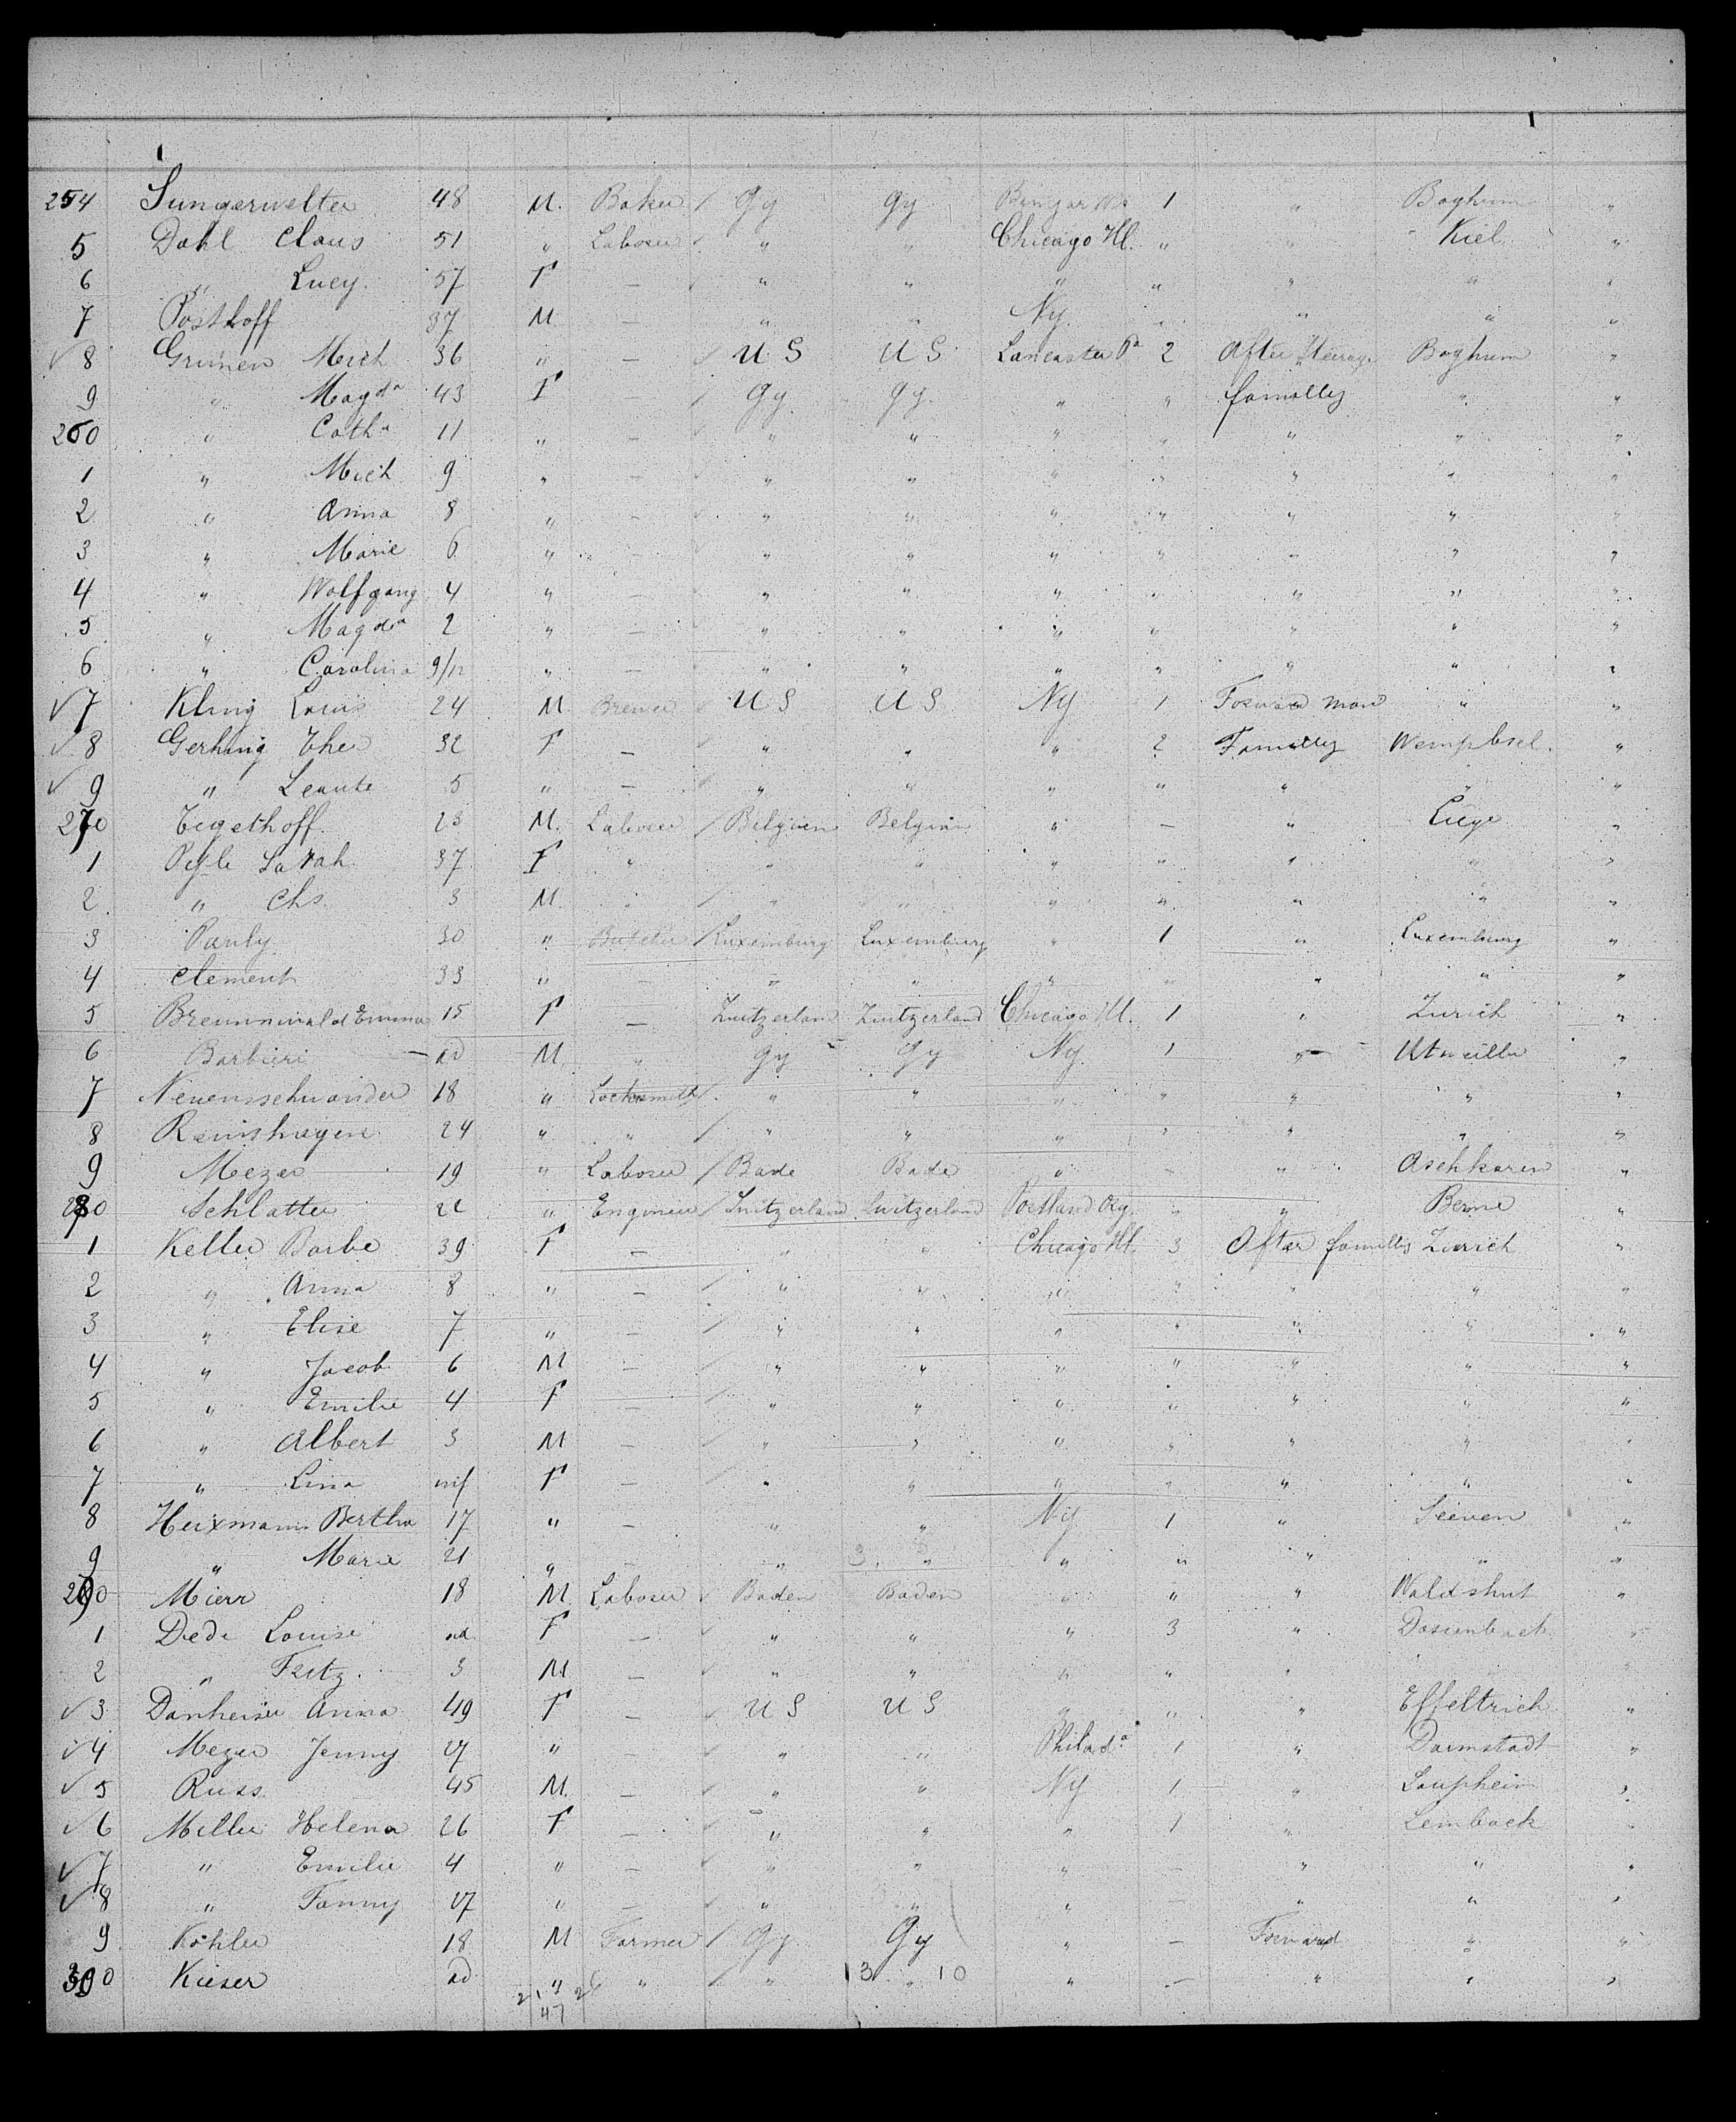 254 Sungerwelter 48 M. Baker / Gy Gy 1 " Boghum "
5 Dahl Claus 51 " Laborer " " Chicago Ill. " " Kiel "
6 " Lucy. 57 F — " " " " " " "
7 Posthoff 37 M — " " Ny. " " " "
✓ 8 Grünen Mich 36 " — U S U S Lancaster Pa 2 After Steerage Boghum "
9 " Magda 43 F Gy Gy. " " familley " "
260 " Catha 11 " — " " " " " " "
1 " Mich 9 " — " " " " " " "
2 " Anna 8 " — " " " " " " "
3 " Marie 6 " — " " " " " " "
4 " Wolfgang 4 " — " " " " " " "
5 " Magda 2 " — " " " " " " "
6 " Carolina 9/12 " — " " " " " " "
✓ 7 Kling Louis 24 M Brewer U S U S Ny 1 Forward man " "
✓ 8 Gerhing Ther 32 F — " " " 2 Familley "
✓ 9 " 5 " — " " " " " " "
270 Tegethoff 23 M. Laborer / Belgien Belgien " — " Liege "
1 Sarah 37 F " " " " " " " "
2 " Chs. 3 M. " " " " " " " "
3 Pauly 30 " Luxemburg Luxemburg " 1 " Luxemburg "
4 Clement 33 " — " " " " " " "
5 Brennwald Emma 15 F — Zwitzerland Zwitzerland Chicago Ill. 1 " Zurich "
6 Barbieri — ad M. " Gy Gy Ny 1 " "
7 Neuensschwander 18 " Locksmith " " " " " " "
8 Remshagen 24 " " / " " " " " " "
9 Mezer 19 " Laborer / Bade Bade " — " "
280 Schlatter 22 " Engineer / Zwitzerland Zwitzerland Portland Org. " " Berne "
1 Keller Barbe 39 F — " " Chicago Ill. 3 After famillis Zurich "
2 " Anna 8 " — " " " " " " "
3 " Elise 7 " — " " " " " " "
4 " Jacob 6 M — " " " " " " "
5 " Emilie 4 F — " " " " " " "
6 " Albert 3 M — " " " " " " "
7 " Lina inf F — " " " " " " "
8 Heixmann Bertha 17 " — " " Ny 1 " Seeven "
9 " Marie 21 " — " " " " " " "
290 Mierr 18 M Laborer Baden Baden " " " Waldshut "
1 Dede Louise ad. F — " " " 3 " Dossenbach "
2 " Fritz. 3 M — " " " " " "
✓ 3 Danheiser Anna 49 F — U S U S " " " Effeltrich "
✓ 4 Mezer Jenny 17 " — " " Philada 1 " Darmstadt "
✓ 5 Russ 45 M. — " " Ny 1 " Laupheim "
✓ 6 Miller Helena 26 F — " " " 1 " Lembach "
✓ 7 " Emilie 4 " — " " " — " " "
✓ 8 " Fanny 17 " — " " " — " " "
9 Köhler 18 M Farmer / Gy Gy " — Forward " "
300 Kieser ad " " / " 13 " 10 " — " " "
21 26
47